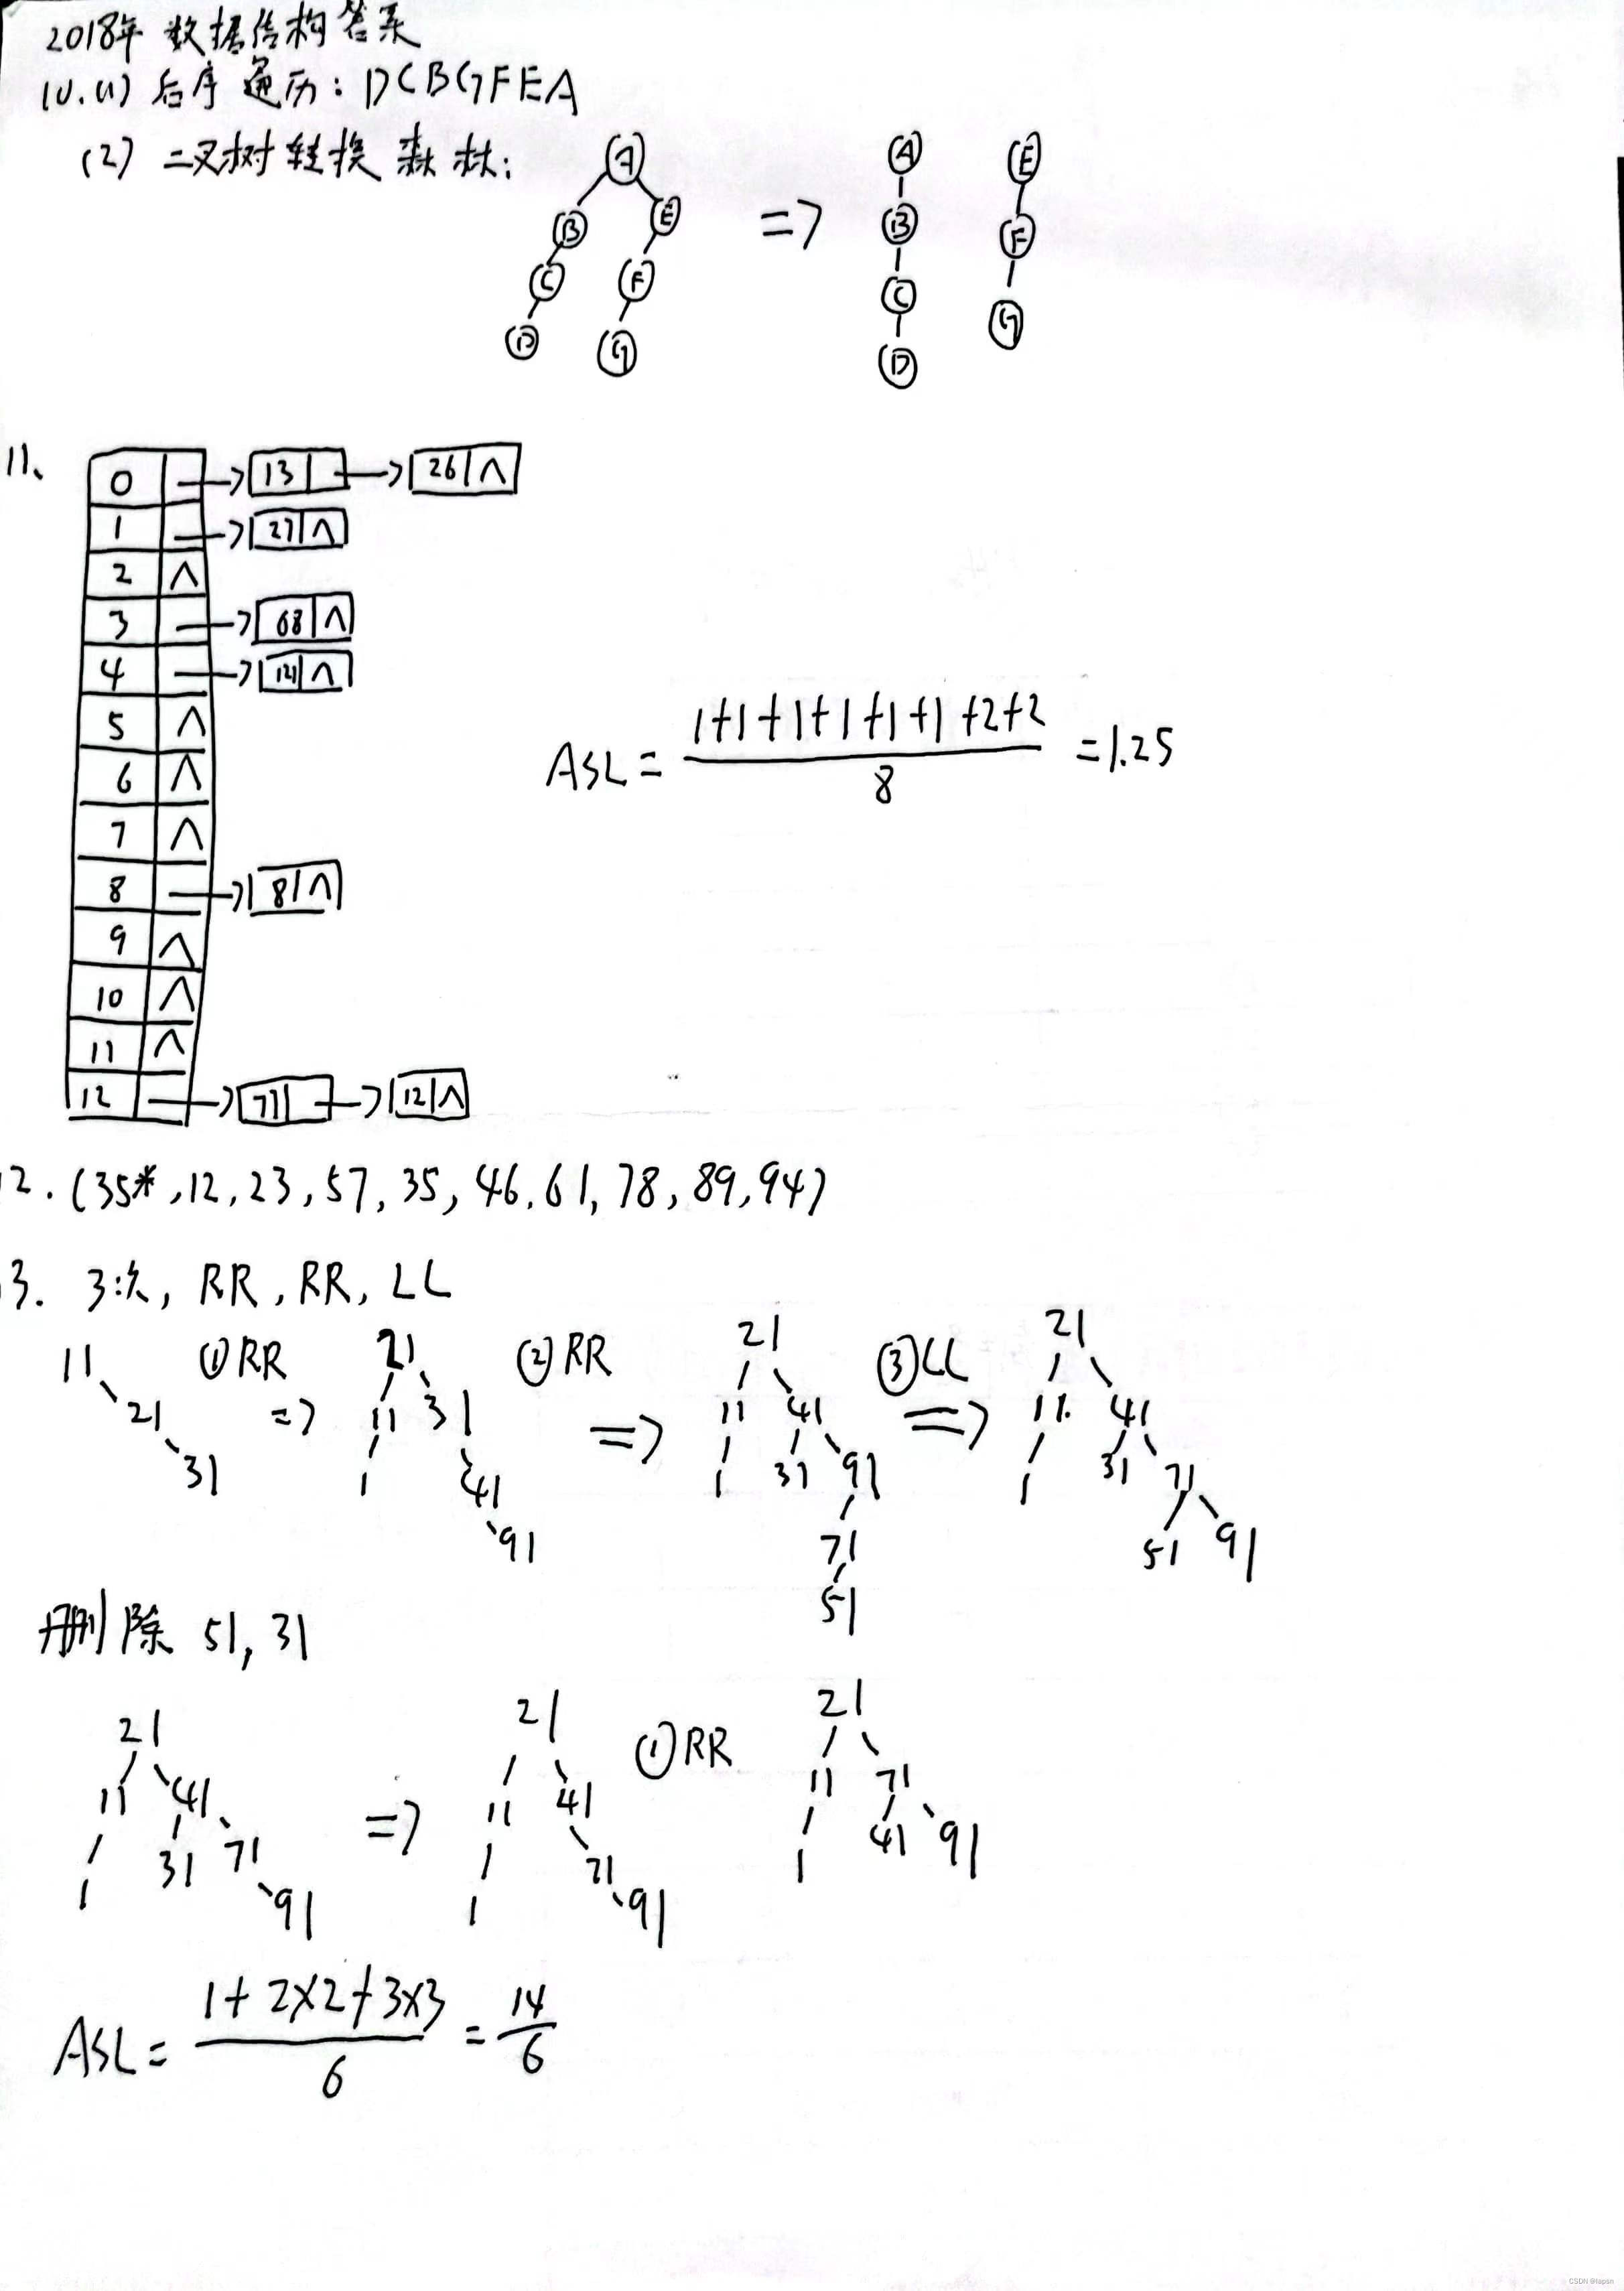 2018年 数据结构答案
10.(1) 后序遍历: DCBGFEA
(2) 二叉树转换森林:
A
B E
C F
D G
=>
A E
B F
C G
D
11、
0 13 26 ∧
1 27 ∧
2 ∧
3 68 ∧
4 121 ∧
5 ∧
6 ∧
7 ∧
8 8 ∧
9 ∧
10 ∧
11 ∧
12 77 12 ∧
ASL = (1+1+1+1+1+1+2+2)/8 = 1.25
12. (35*, 12, 23, 57, 35, 46, 61, 78, 89, 94)
3. 3次, RR, RR, LL
11 21 31
①RR =>
21 11 31 1 41 91
②RR =>
21 11 41 1 31 91 71 51
③LL =>
21 11 41 1 31 71 51 91
删除 51, 31
21 11 41 1 31 71 91
=>
21 11 41 1 71 91
①RR
21 11 71 1 41 91
ASL = (1+2×2+3×3)/6 = 14/6
CSDN @lapsn